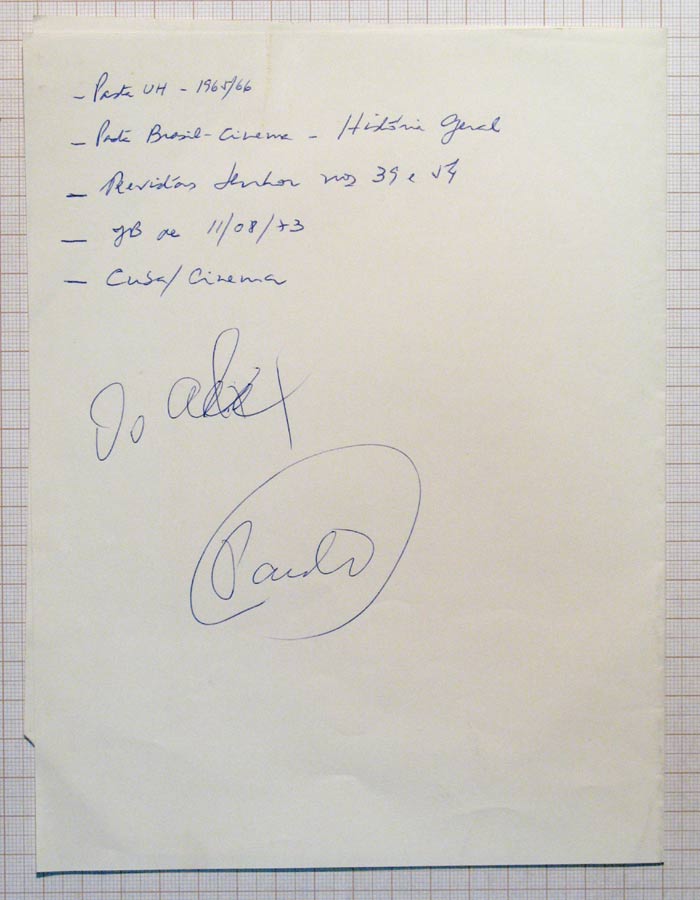 - Pasta UH - 1965/66
- Pasta Brasil-Cinema - História Geral
- Revistas Senhor nos 39 e 54
- JB de 11/08/73
- Cuba/Cinema
Do Alex
Paulo